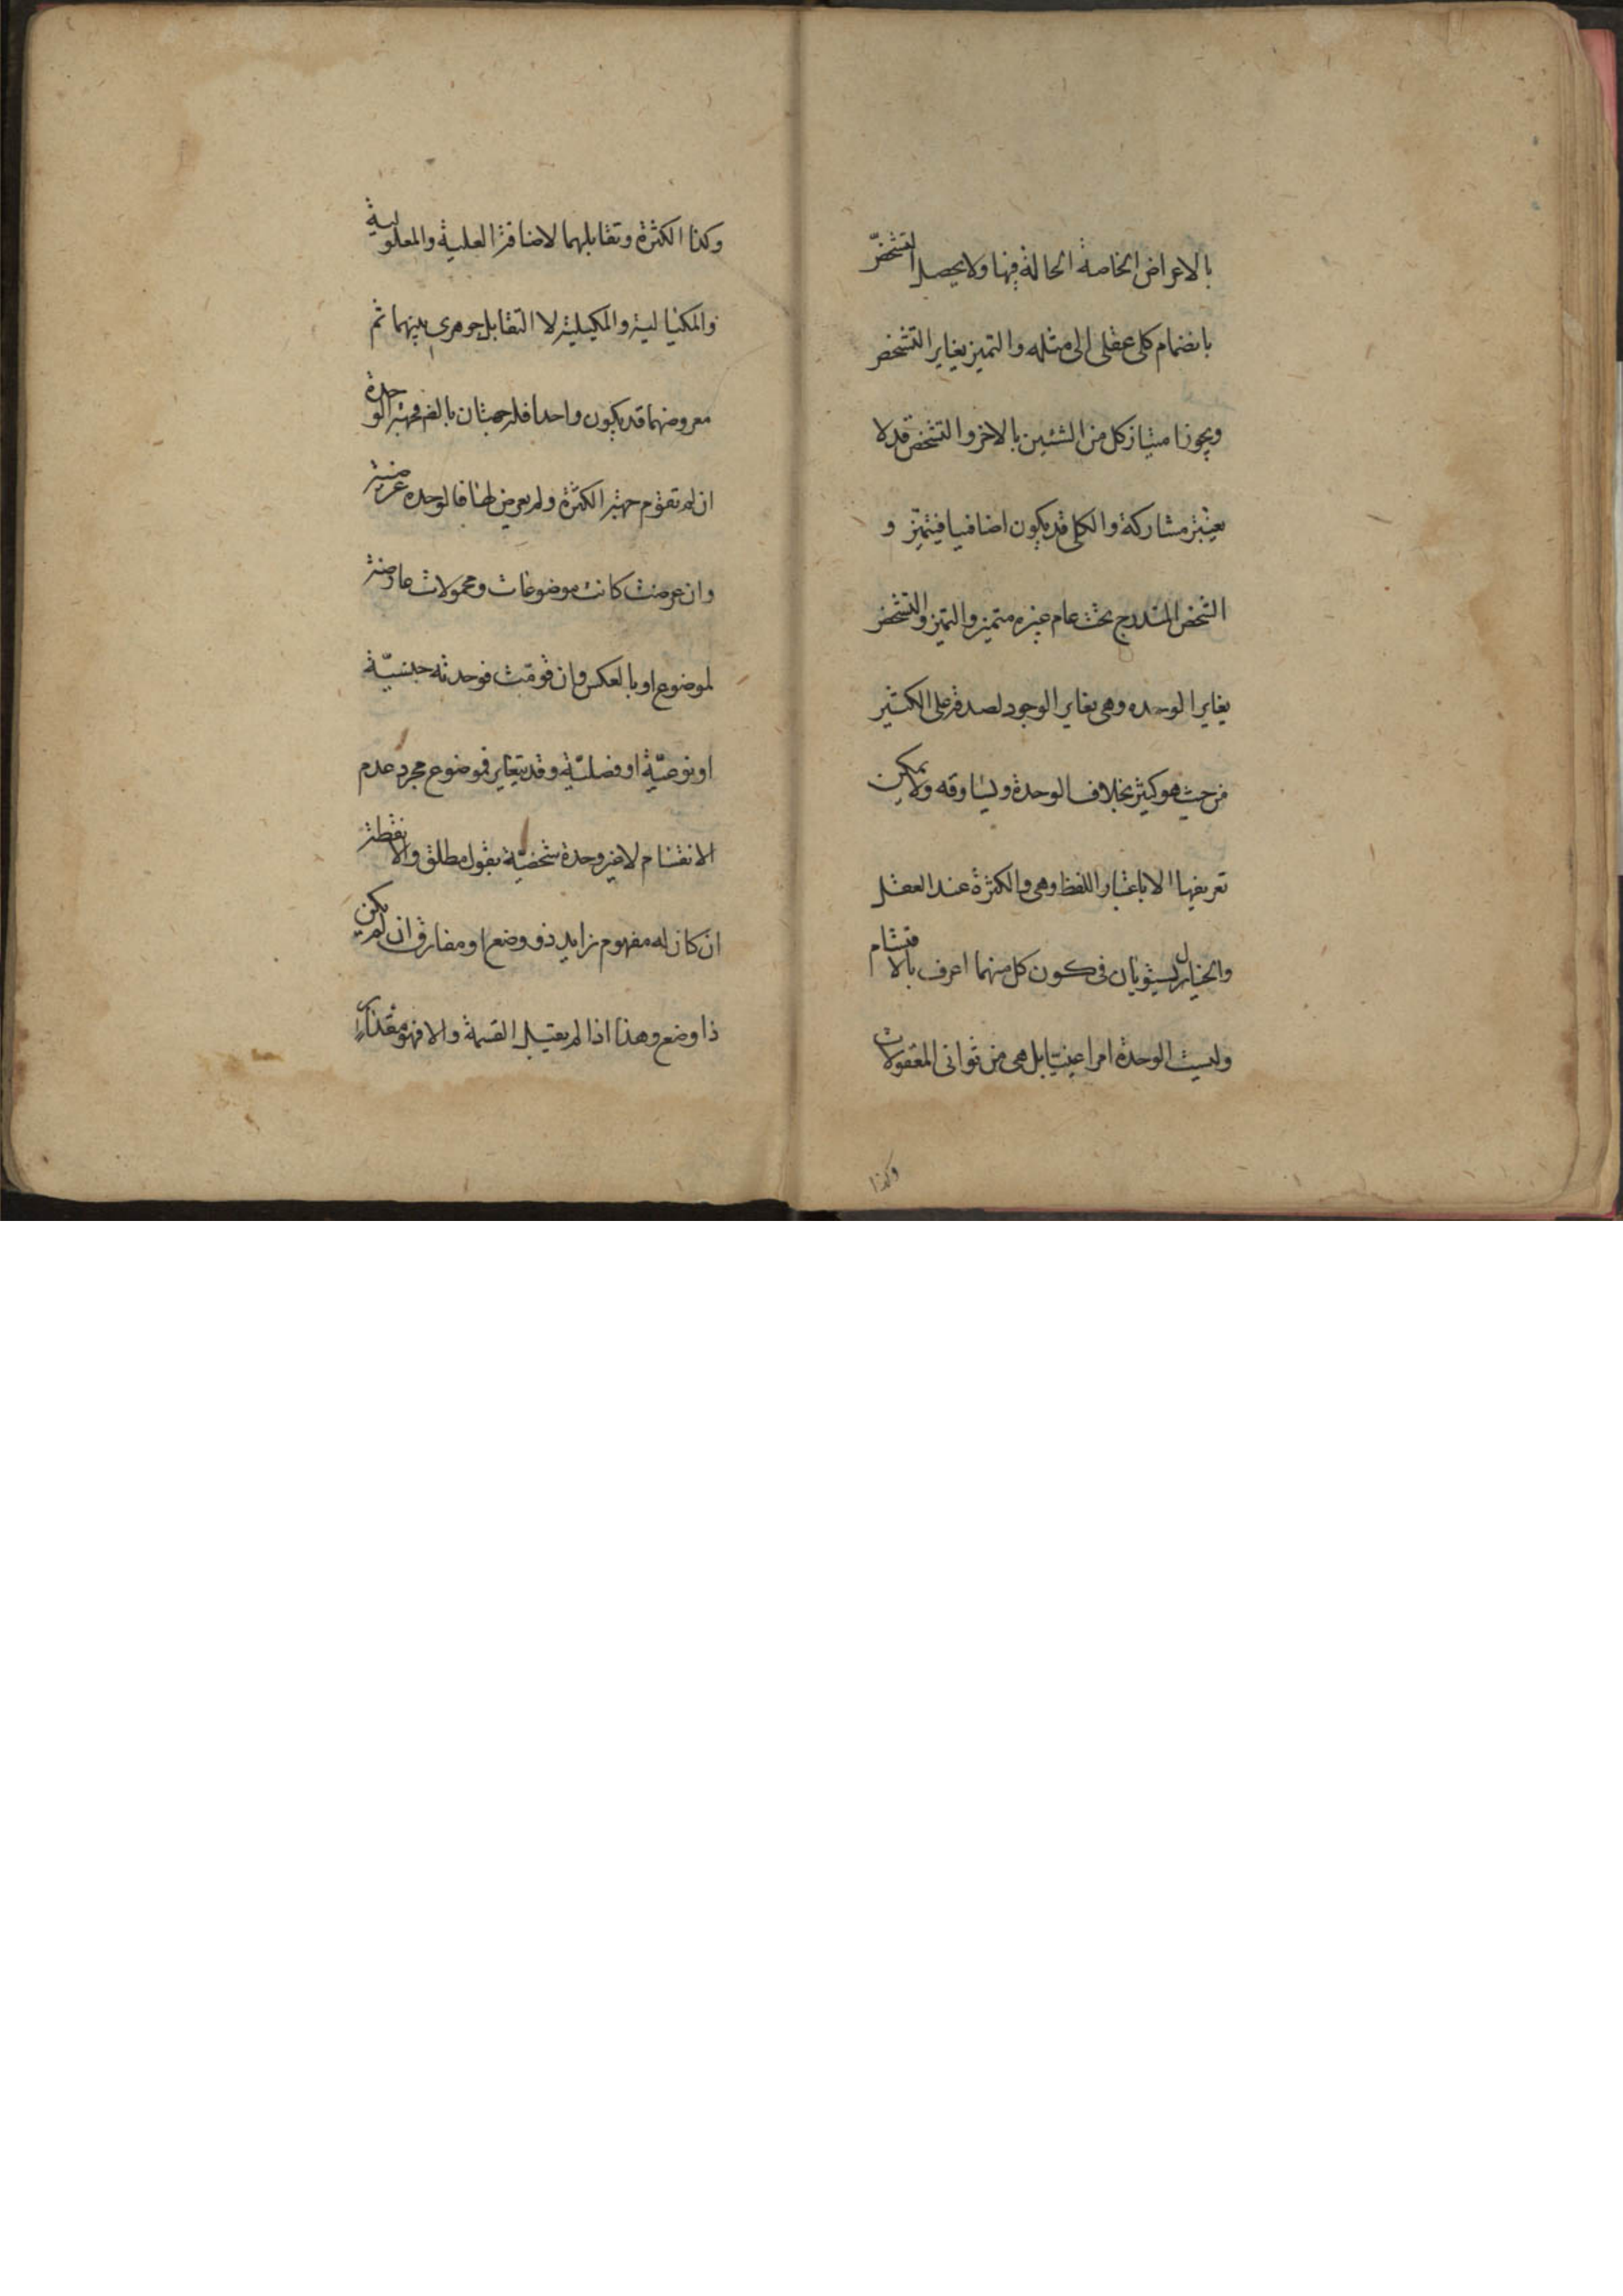 بالاعراض الخاصة الحالة فيها ولا يحصل التشخص
بانضمام كلى عقلى الى مثله والتميز يغاير التشخص
ويجوز امتياز كل من الشئين بالاخر والتشخص قد لا
يعتبر مشاركة والكلى قد يكون اضافيا فيتميز و
الشخص المندرج تحت عام غيره متميز والتميز والتشخص
يغاير الوحده وهى تغاير الوجود لصدقه على الكثير
من حيث هو كثير بخلاف الوحدة ويساوقه ولا يمكن
تعريفها الا باعتبار اللفظ وهى والكثرة عند العقل
والخيال يستويان فى كون كل منهما اعرف بالاقتسام
وليست الوحدة امرا عينيا بل هى من ثوانى المعقولات
وكذا
وكذا الكثرة وتقابلهما لاضافة العلية والمعلولية
والمكيالية والمكيلية لا التقابل جوهرى بينهما ثم
معروضهما قد يكون واحدا فله جهتان بالضم فجهة الوحدة
ان لم تقوم جهة الكثرة ولم يعرض لها فالوحده عرضية
وان عرضت كانت موضوعات ومحمولات عارضة
لموضوع او بالعكس وان قومت فوحدته جنسية
او نوعية او فصلية وقد يتغاير فموضوع مجرد عدم
الانقسام لا غير وحدة شخصية بقول مطلق والا نقطة
ان كان له مفهوم زايد ذو وضع او مفارق ان لم يكن
ذا وضع وهذا اذا لم يقبل القسمة والا فهو مقدار